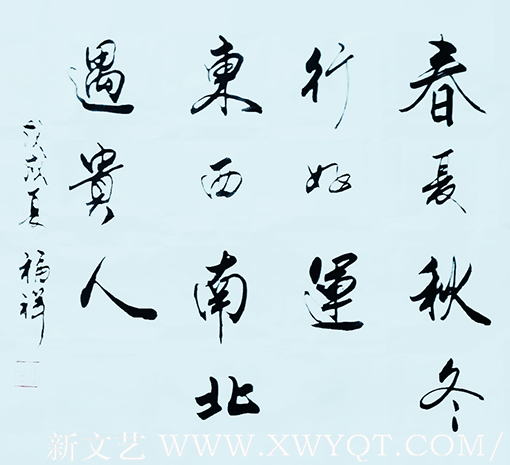 春夏秋冬
行好運
東西南北
遇貴人
戊戌夏 福祥
新文艺 WWW.XWYQT.COM/